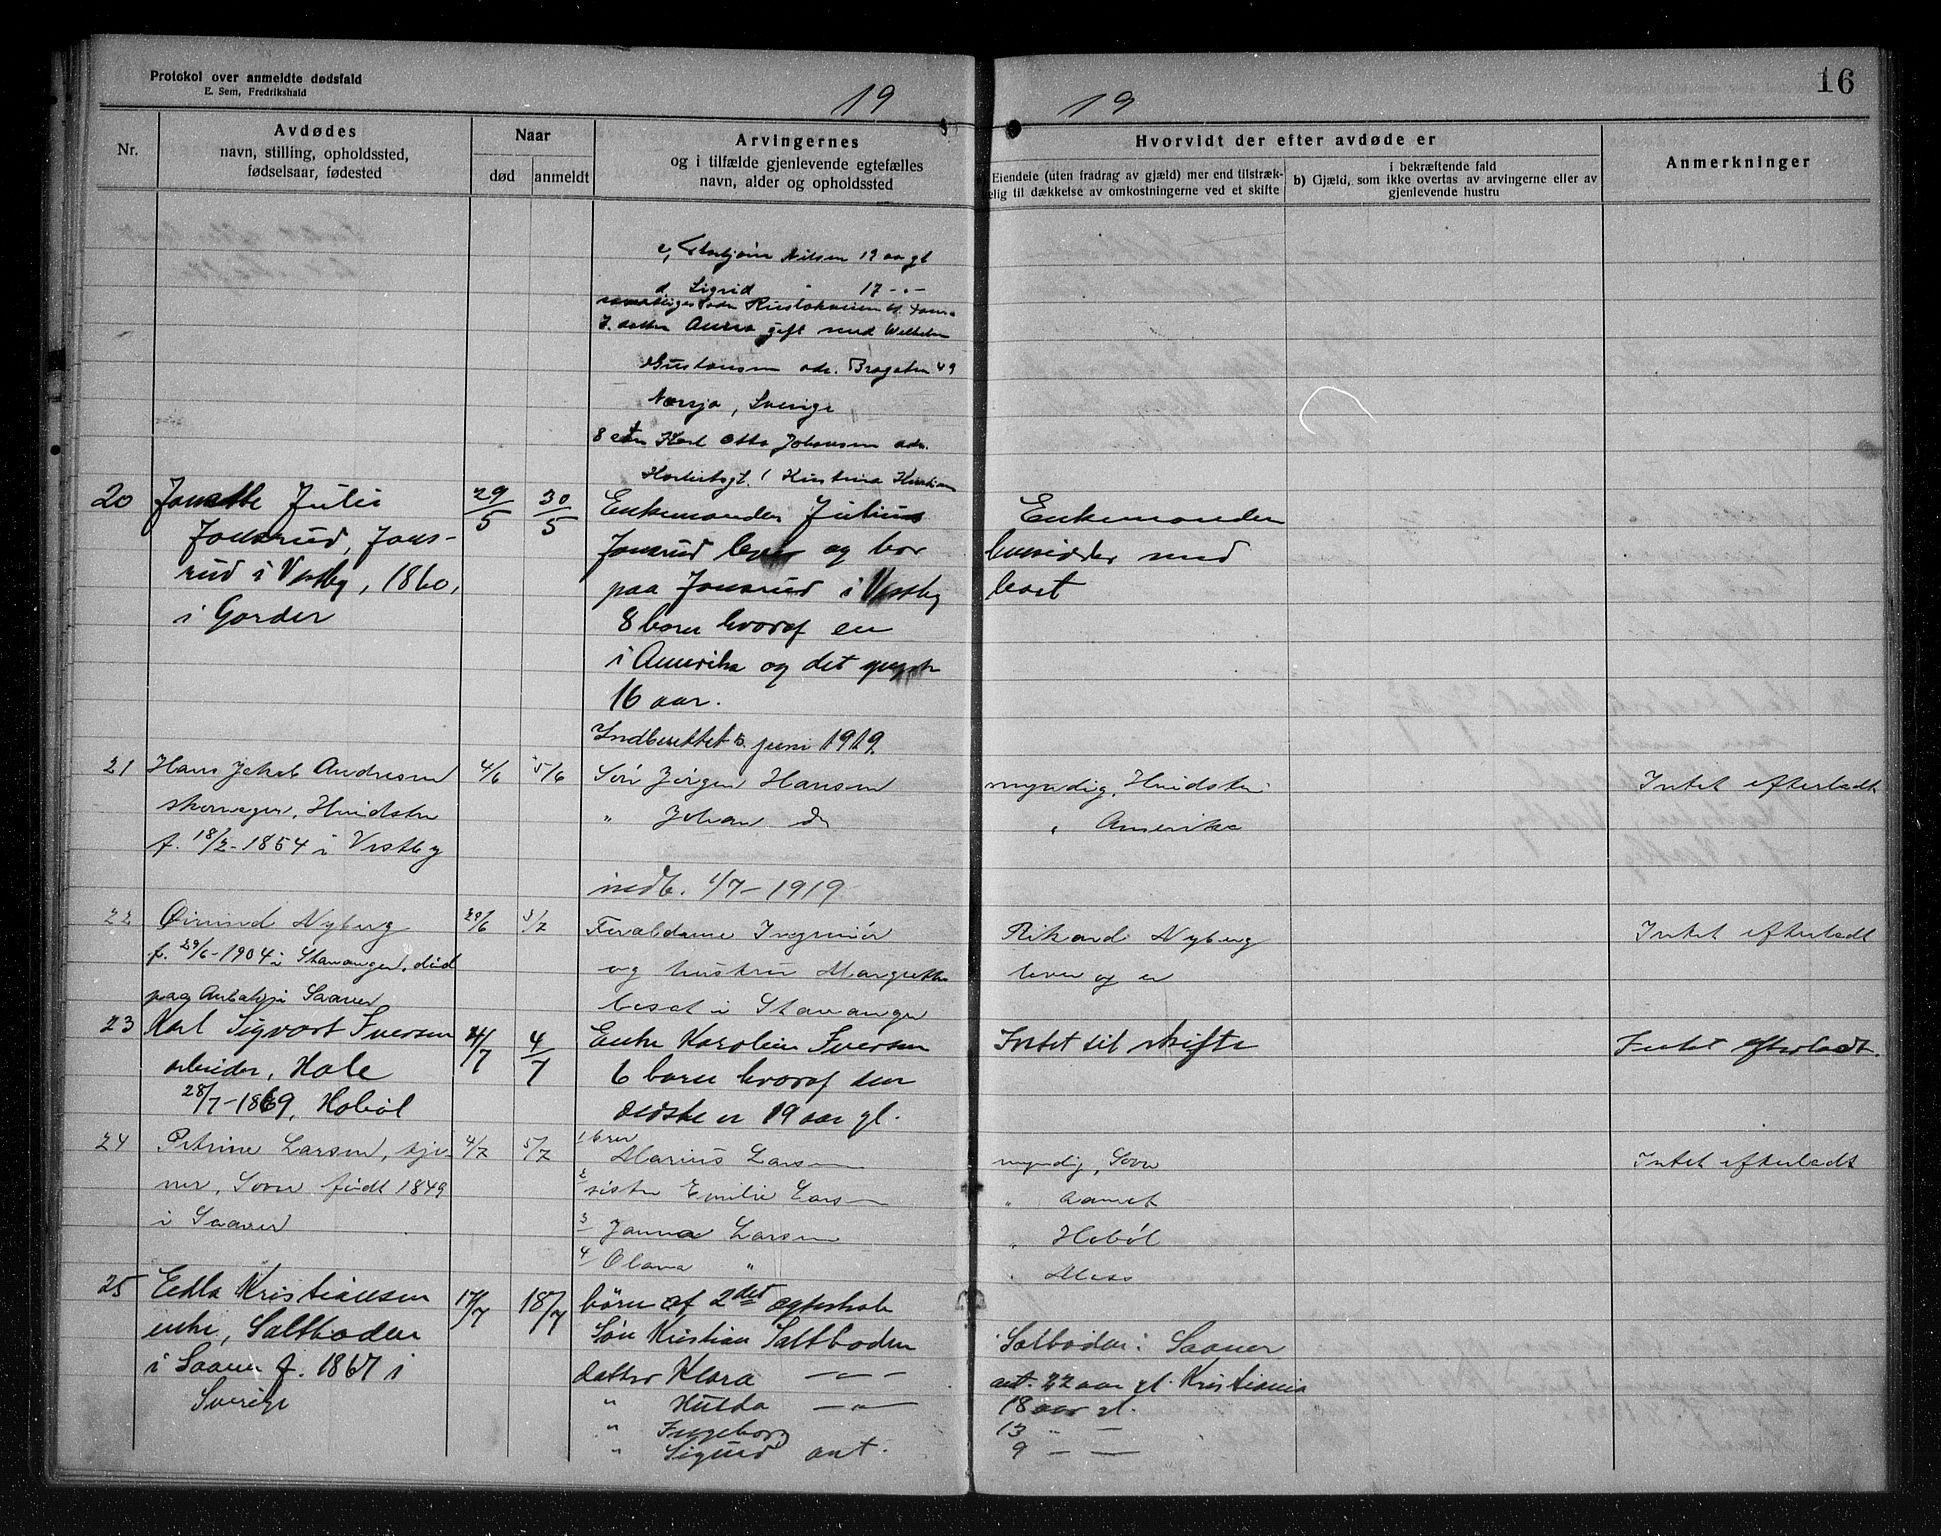 Protokol over anmeldte dødsfald
E. Sem, Fredrikshald
19
19
16
Nr.
Avdødes
navn, stilling, opholdssted,
fødselsaar, fødested
Naar
død
anmeldt
Arvingernes
og i tilfælde gjenlevende egtefælles
navn, alder og opholdssted
Hvorvidt der efter avdøde er
Eiendele (uten fradrag av gjæld) mer end tilstræk-
elig til dækkelse av omkostningerne ved et skifte
i bekræftende fald
b) Gjæld, som ikke overtas av arvingerne eller av
gjenlevende hustru
Anmerkninger
Nilsen 19 aar gl
d. Sigrid " 17 - " -
7. datter gift med Wilhelm
Gustavsen adr. 49
Sverige
8 Karl Otto Johansen adr.
20
Julie
Jonsrud, Jons-
rud i Vestby, 1860,
i Garder
29/5
30/5
Enkemanden Julius
Jonsrud lever og bor
paa Jonsrud i Vestby
8 barn hvoraf en
i Amerika og det yngste
16 aar.
Indberettet 5. juni 1919.
Enkemanden
hensidder med
boet
21
Hans Jakob Andresen
f. 18/2-1854 i Vestby
4/6
5/6
Søn Jørgen Hansen
" Johan do
indb. 1/7-1919
myndig, Hvidsten
" Amerika
Intet efterladt
22
Øivind Nyberg
f. 29/6-1904 i Stavanger, død
paa i Saaner
29/6
3/7
Forældrene Ingeniør
og hustru Margrethe
bosat i Stavanger
Rikard Nyberg
lever og er
Intet efterladt
23
Karl Sigvart Iversen
arbeider, Hole
28/7-1869, Hobøl
4/7
4/7
Enke Karoline Iversen
6 barn hvoraf den
ældste er 19 aar gl.
Intet til skifte
Intet efterladt.
24
Petrine Larsen, tje-
ner, Soon født 1849
i Saaner
4/7
5/7
1 bror
Marius Larsen
2 søster Emilie Larsen
3 Janna Larsen
4 Olava "
myndig, Soon
" samt
" Hobøl
" Moss
Intet efterladt
25
Edla Kristiansen
enke, Saltboden
i Saaner f. 1867 i
Sverige
17/7
18/7
børn af 2det ægteskab
Søn Kristian Saltboden
datter Klara — " —
" Hulda — " —
" Ingeborg
" Sigurd
Saltboden i Saaner
22 aar gl. Kristiania
18 aar gl.
13 " —
9 — —